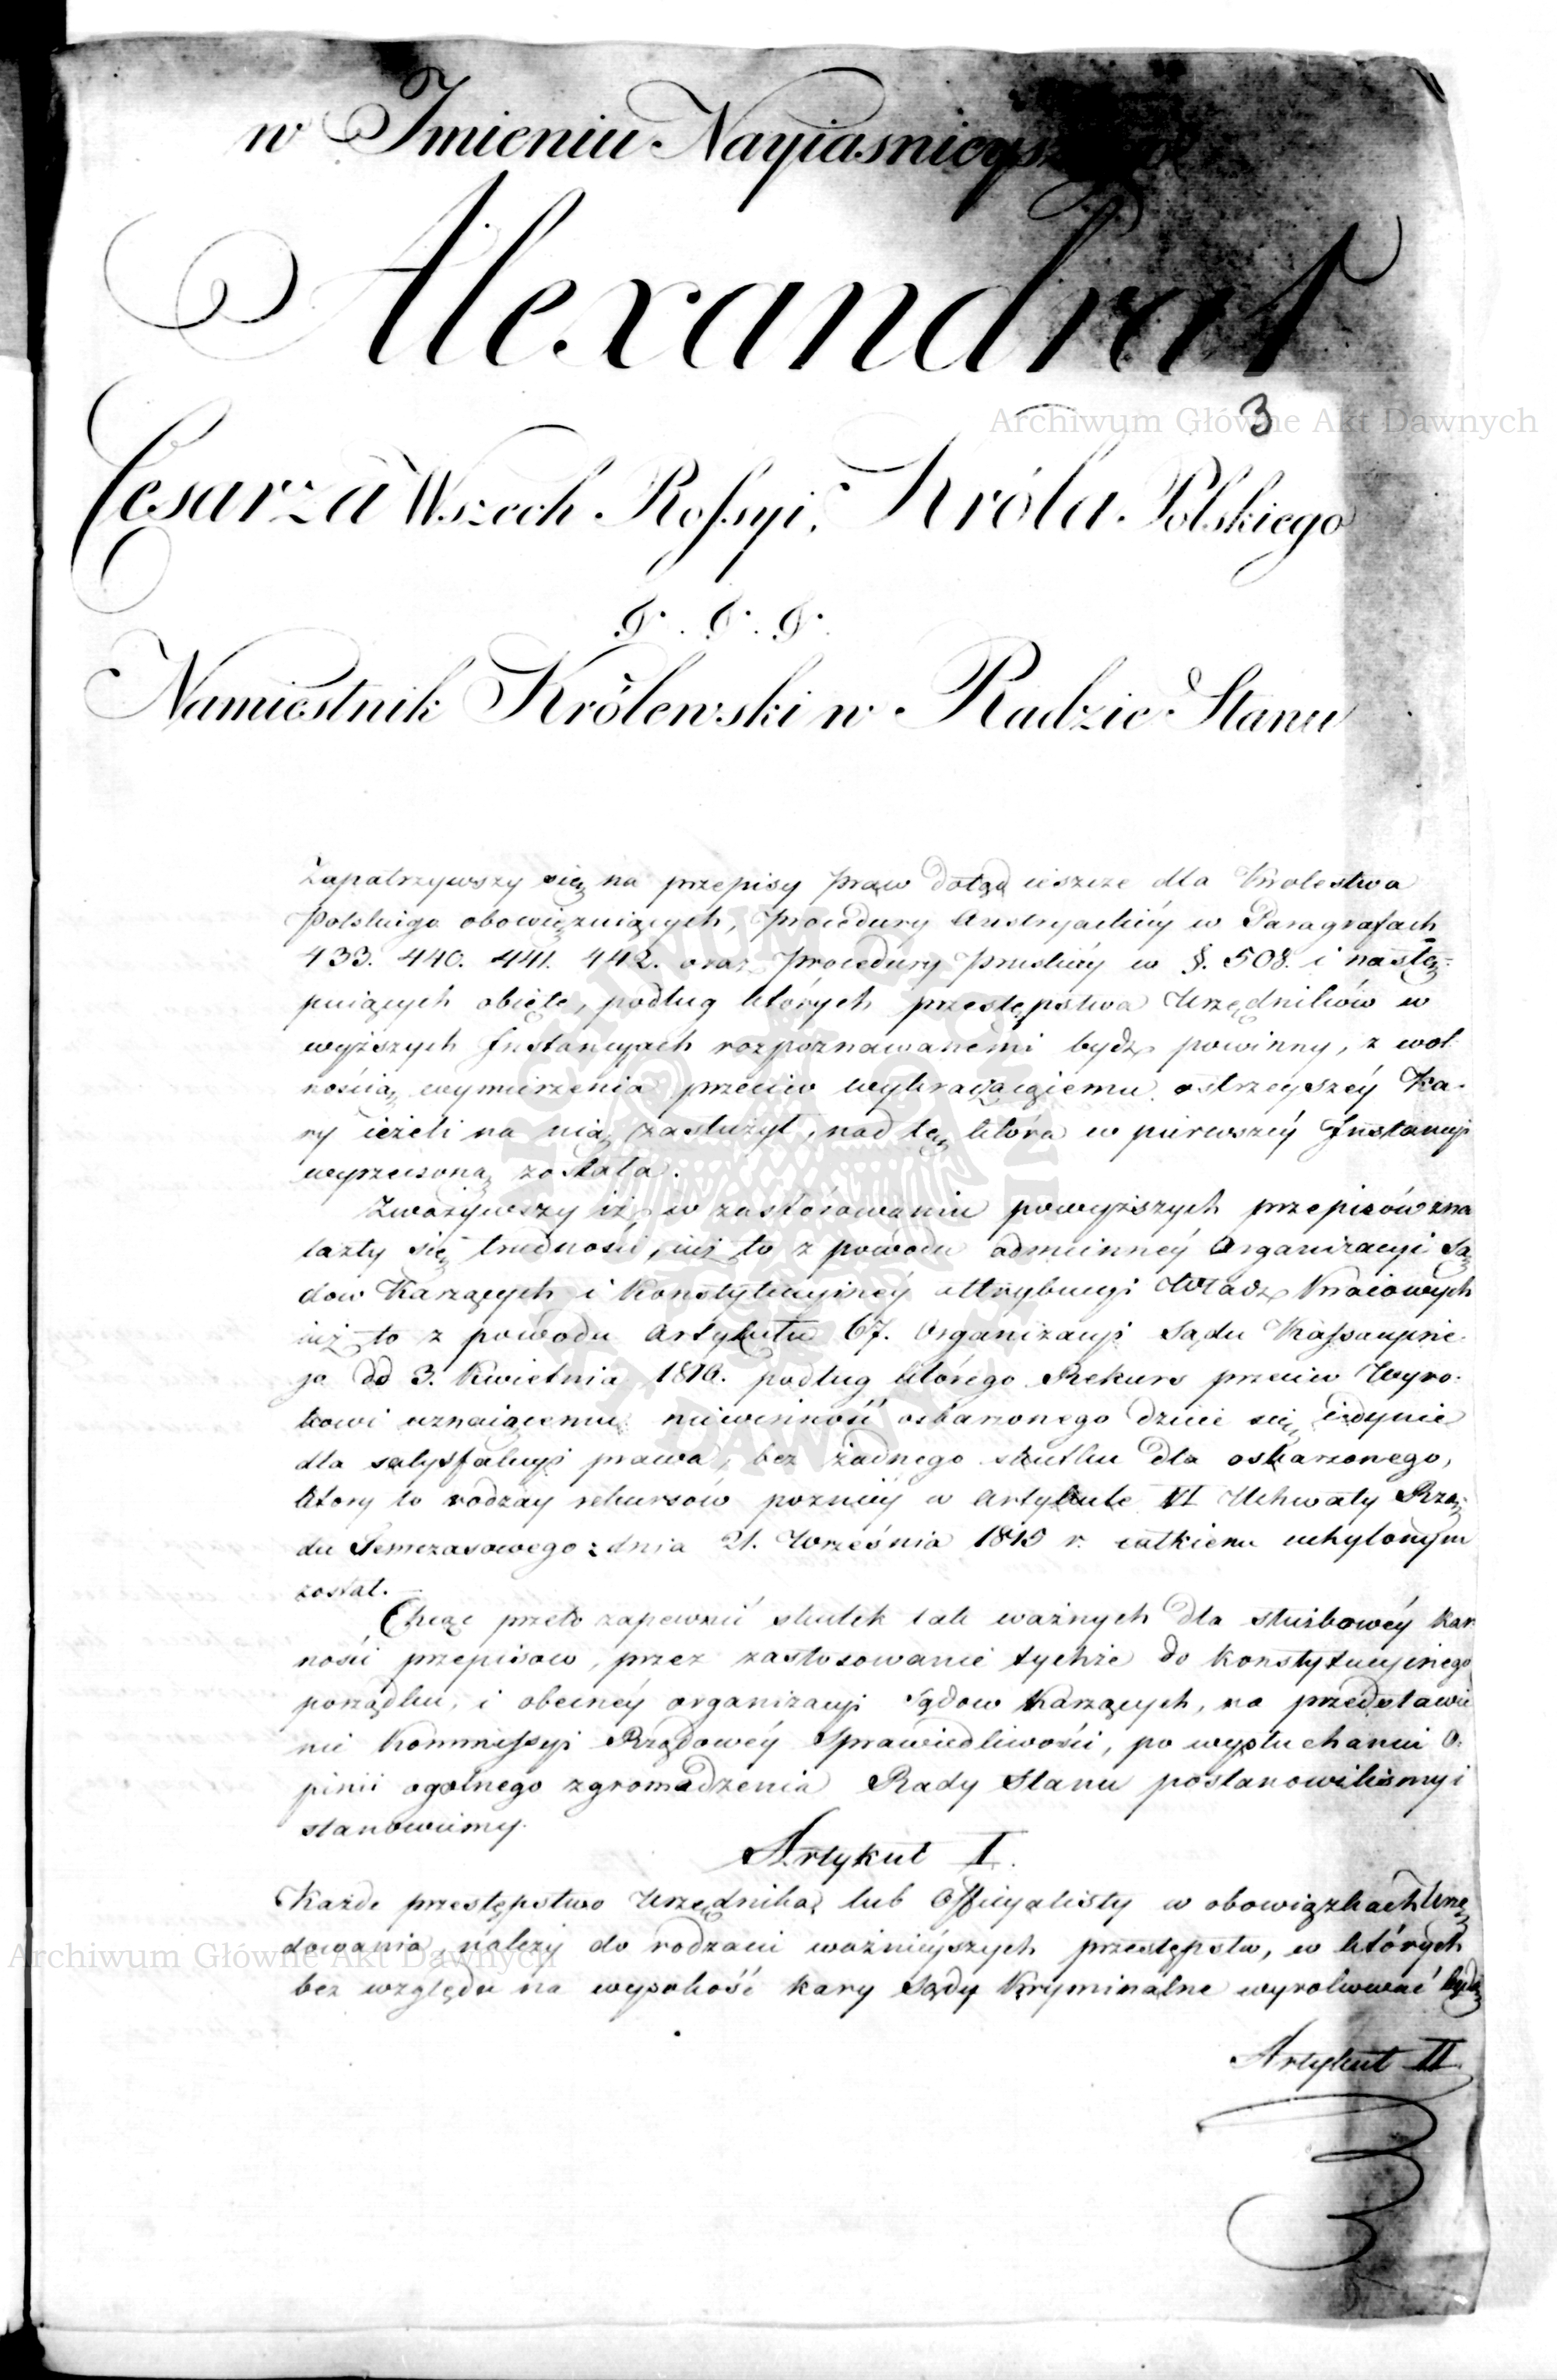 w Imieniu Nayiasnieysz
Alexandra I
3
Archiwum Główne Akt Dawnych
Cesarza Wszech Rossyi, Króla Polskiego
&. &. &.
Namiestnik Królewski w Radzie Stanu
Zapatrzywszy się na przepisy praw dotąd ieszcze dla Krolestwa
Polskiego obowięzuiących, Procedury Austryackiey w Paragrafach
433. 440. 441. 442. oraz Procedury Pruskiéy w §. 508. i nastę-
puiących obięte, podług których przestępstwa Urzędników w
wyższych Instancyach rozpoznawanemi bydź powinny, z wol-
nością wymierzenia przeciw wykraczaiącemu ostrzeyszéy Ka-
ry ieżeli na nią zasłużył, nad tę która w pierwszéy Instancyi
wyrzeczoną została.
Zważywszy iż w zastósowaniu powyższych przepisów zna
lazły się trudności, iuż to z powodu odmienney Organizacyi Są
dow Karzących i Konstytucyinéy attrybucyi Władz Kraiowych
iuż to z powodu Artykułu 67. Organizacyi Sądu Kassacyine-
go dd 3. Kwietnia 1810. podług którego Rekurs przeciw Wyro-
kowi uznaiącemu niewinność oskarzonego dzieie się iedynie
dla satysfakcyi prawa, bez żadnego skutku dla oskarzonego,
ktory to rodzay rekursow pozniéy w Artykule VI Uchwały Rzą-
du Temczasowego z dnia 21. Września 1815 r. całkiem uchylonym
został.
Chcąc przeto zapewnić skutek tak ważnych dla służbowéy kar
ności przepisow, przez zastosowanie tychże do konstytucyinego
porządku, i obecnéy organizacyi Sądow Karzących, na przedstawie
nie Kommissyi Rządowéy Sprawiedliwości, po wysłuchaniu O-
pinii ogolnego zgromadzenia Rady Stanu postanowiliśmy i
stanowiemy.
Artykuł I.
Każde przestępstwo Urzędnika lub Officyalisty w obowiązkach Urzę
dowania należy do rodzaiu ważnieyszych przestępstw, w których
bez względu na wysokość kary Sądy Kryminalne wyrokować będą
Archiwum Główne Akt Dawnych
Artykuł II.